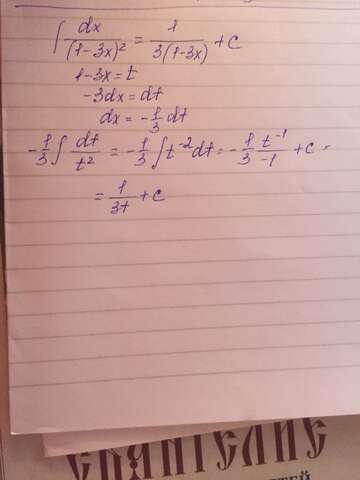 ∫ dx/(1-3x)² = 1/3(1-3x) + c
1-3x = t
-3dx = dt
dx = -1/3 dt
-1/3 ∫ dt/t² = -1/3 ∫ t⁻² dt = -1/3 t⁻¹/-1 + c =
= 1/3t + c